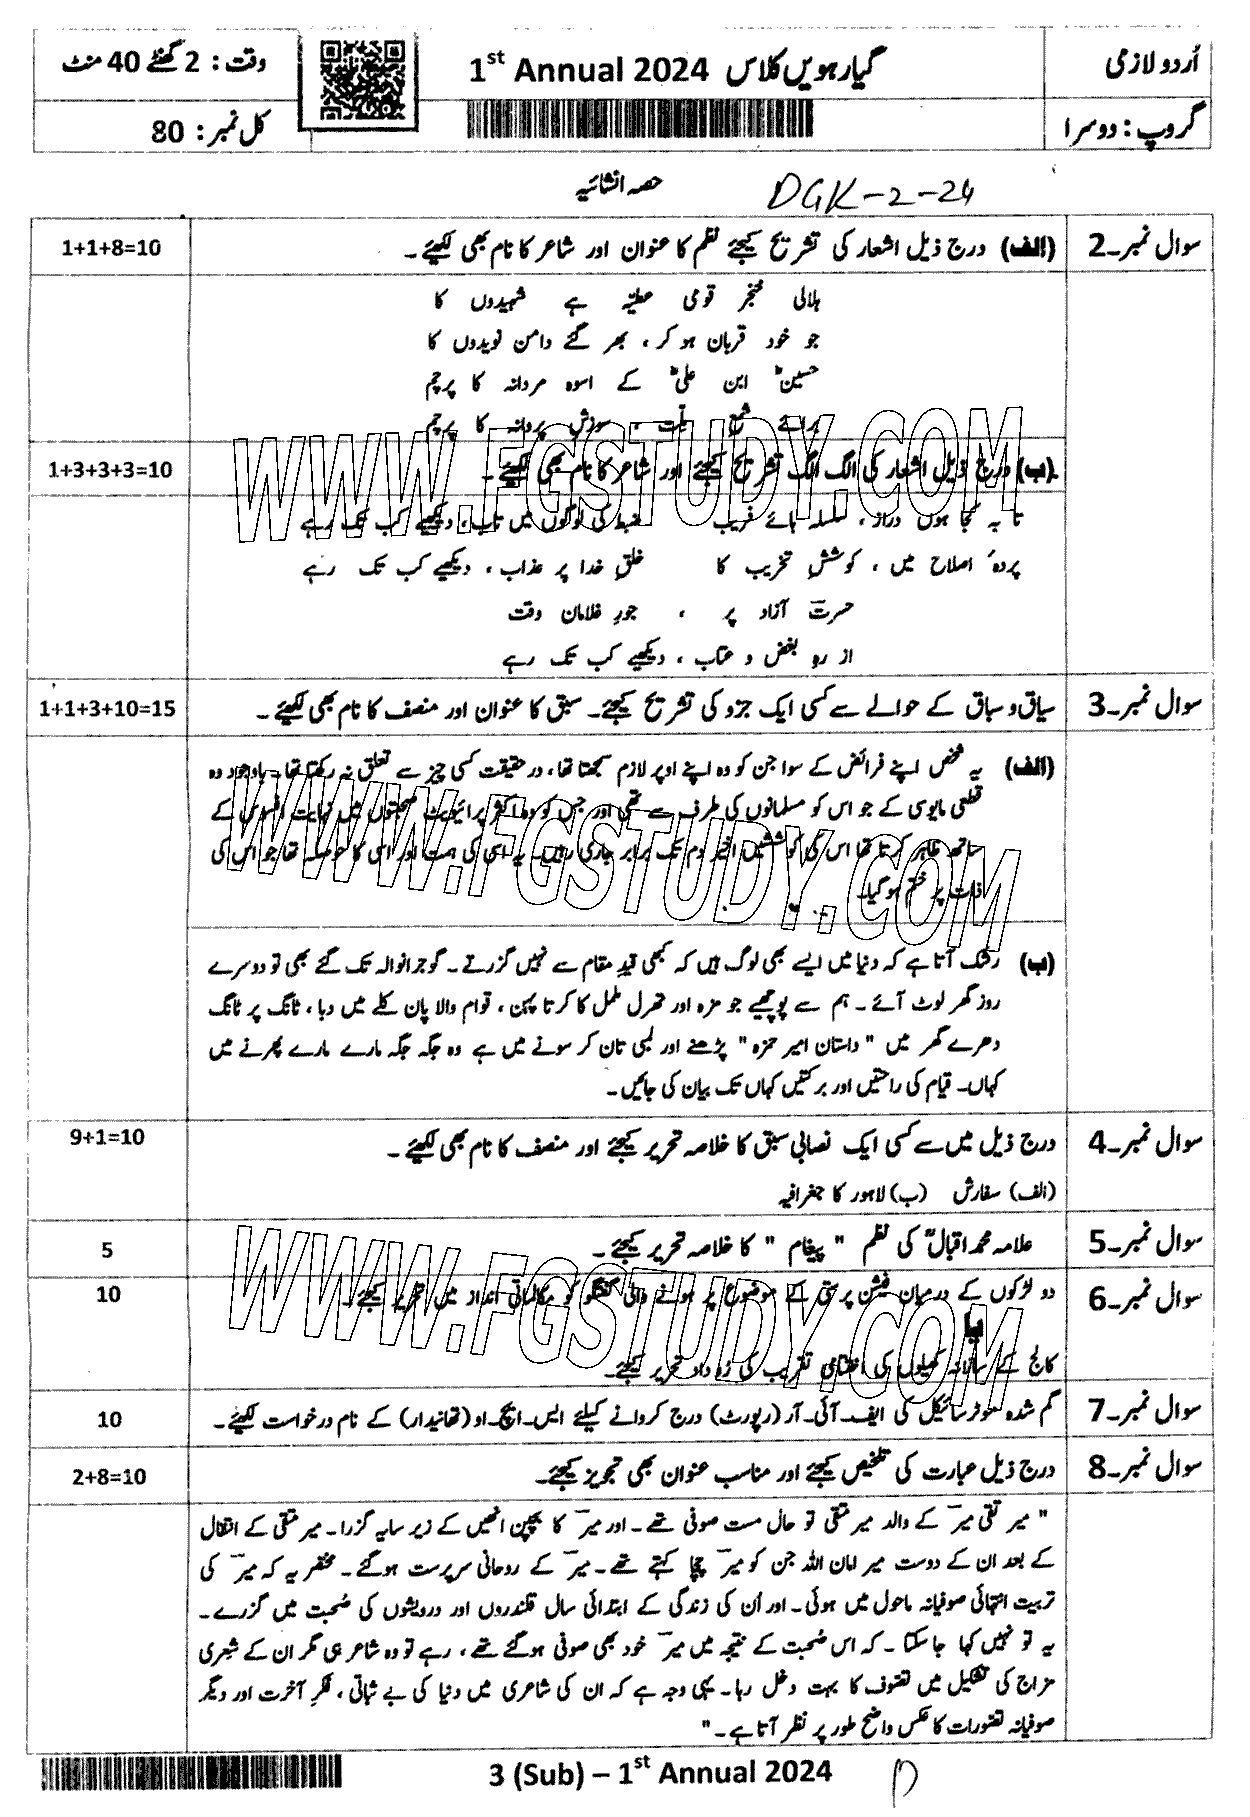 اُردو لازمی
گیارہویں کلاس 1st Annual 2024
وقت: 2 گھنٹے 40 منٹ
گروپ: دوسرا
کل نمبر: 80
حصہ انشائیہ
DGK-2-24
سوال نمبر۔2 (الف) درج ذیل اشعار کی تشریح کیجئے نظم کا عنوان اور شاعر کا نام بھی لکھیئے۔ 1+1+8=10
ہلالی خنجر قومی عطیّہ ہے شہیدوں کا
جو خود قربان ہو کر، بھر گئے دامن نویدوں کا
حسینؓ ابن علیؓ کے اسوہ مردانہ کا پرچم
برائے شمع ملّت، سوزشِ پروانہ کا پرچم
(ب) درج ذیل اشعار کی الگ الگ تشریح کیجئے اور شاعر کا نام بھی لکھیئے۔ 1+3+3+3=10
تا بہ کجا ہوں دراز، سلسلہ ہائے فریب ضبط کی لوگوں میں تاب، دیکھیے کب تک رہے
پردہٴ اصلاح میں، کوششِ تخریب کا خلقِ خدا پر عذاب، دیکھیے کب تک رہے
حسرتؔ آزاد پر، جورِ غلامان وقت
از رہِ بغض و عتاب، دیکھیے کب تک رہے
سوال نمبر۔3 سیاق و سباق کے حوالے سے کسی ایک جزو کی تشریح کیجئے۔ سبق کا عنوان اور منصف کا نام بھی لکھیئے۔ 1+1+3+10=15
(الف) یہ شخص اپنے فرائض کے سوا جن کو وہ اپنے اوپر لازم سمجھتا تھا، در حقیقت کسی چیز سے تعلق نہ رکھتا تھا۔ باوجود وہ
قطعی مایوسی کے جو اس کو مسلمانوں کی طرف سے تھی اور جس کو وہ اکثر پرائیویٹ صحبتوں میں نہایت افسوس کے
ساتھ ظاہر کرتا تھا اس کی کوششیں اخیر دم تک برابر جاری رہیں۔ یہ اسی کی ہمت اور اسی کا حوصلہ تھا جو اس کی
ذات پر ختم ہو گیا۔
(ب) رشک آتا ہے کہ دنیا میں ایسے بھی لوگ ہیں کہ کبھی قیدِ مقام سے نہیں گزرتے۔ گوجرانوالہ تک گئے بھی تو دوسرے
روز گھر لوٹ آئے۔ ہم سے پوچھیے جو مزہ اور تھرل ململ کا کرتا پہن، قوام والا پان کلے میں دبا، ٹانگ پر ٹانگ
دھرے گھر میں "داستان امیر حمزہ" پڑھنے اور لمبی تان کر سونے میں ہے وہ جگہ جگہ مارے مارے پھرنے میں
کہاں۔ قیام کی راحتیں اور برکتیں کہاں تک بیان کی جائیں۔
سوال نمبر۔4 درج ذیل میں سے کسی ایک نصابی سبق کا خلاصہ تحریر کیجئے اور منصف کا نام بھی لکھیئے۔ 9+1=10
(الف) سفارش (ب) لاہور کا جغرافیہ
سوال نمبر۔5 علامہ محمد اقبالؒ کی نظم "پیغام" کا خلاصہ تحریر کیجئے۔ 5
سوال نمبر۔6 دو لڑکوں کے درمیان فیشن پرستی کے موضوع پر ہونے والی گفتگو کو مکالماتی انداز میں تحریر کیجئے۔ 10
یا
کالج کے سالانہ کھیلوں کی اختتامی تقریب کی رُوداد تحریر کیجئے۔
سوال نمبر۔7 گم شدہ موٹر سائیکل کی ایف۔آئی۔آر (رپورٹ) درج کروانے کیلئے ایس۔ایچ۔او (تھانیدار) کے نام درخواست لکھیئے۔ 10
سوال نمبر۔8 درج ذیل عبارت کی تلخیص کیجئے اور مناسب عنوان بھی تجویز کیجئے۔ 2+8=10
"میر تقی میرؔ کے والد میر متقی تو حال مست صوفی تھے۔ اور میرؔ کا بچپن انھیں کے زیر سایہ گزرا۔ میر متقی کے انتقال
کے بعد ان کے دوست میر امان اللہ جن کو میرؔ چچا کہتے تھے۔ میرؔ کے روحانی سرپرست ہو گئے۔ مختصر یہ کہ میرؔ کی
تربیت انتہائی صوفیانہ ماحول میں ہوئی۔ اور اُن کی زندگی کے ابتدائی سال قلندروں اور درویشوں کی صُحبت میں گزرے۔
یہ تو نہیں کہا جا سکتا۔ کہ اس صُحبت کے نتیجہ میں میرؔ خود بھی صوفی ہو گئے تھے، رہے تو وہ شاعر ہی مگر ان کے شِعری
مزاج کی تشکیل میں تصّوف کا بہت دخل رہا۔ یہی وجہ ہے کہ ان کی شاعری میں دنیا کی بے ثباتی، فکرِ آخرت اور دیگر
صوفیانہ تصّورات کا عکس واضح طور پر نظر آتا ہے۔"
3 (Sub) – 1st Annual 2024
WWW.FGSTUDY.COM
WWW.FGSTUDY.COM
WWW.FGSTUDY.COM